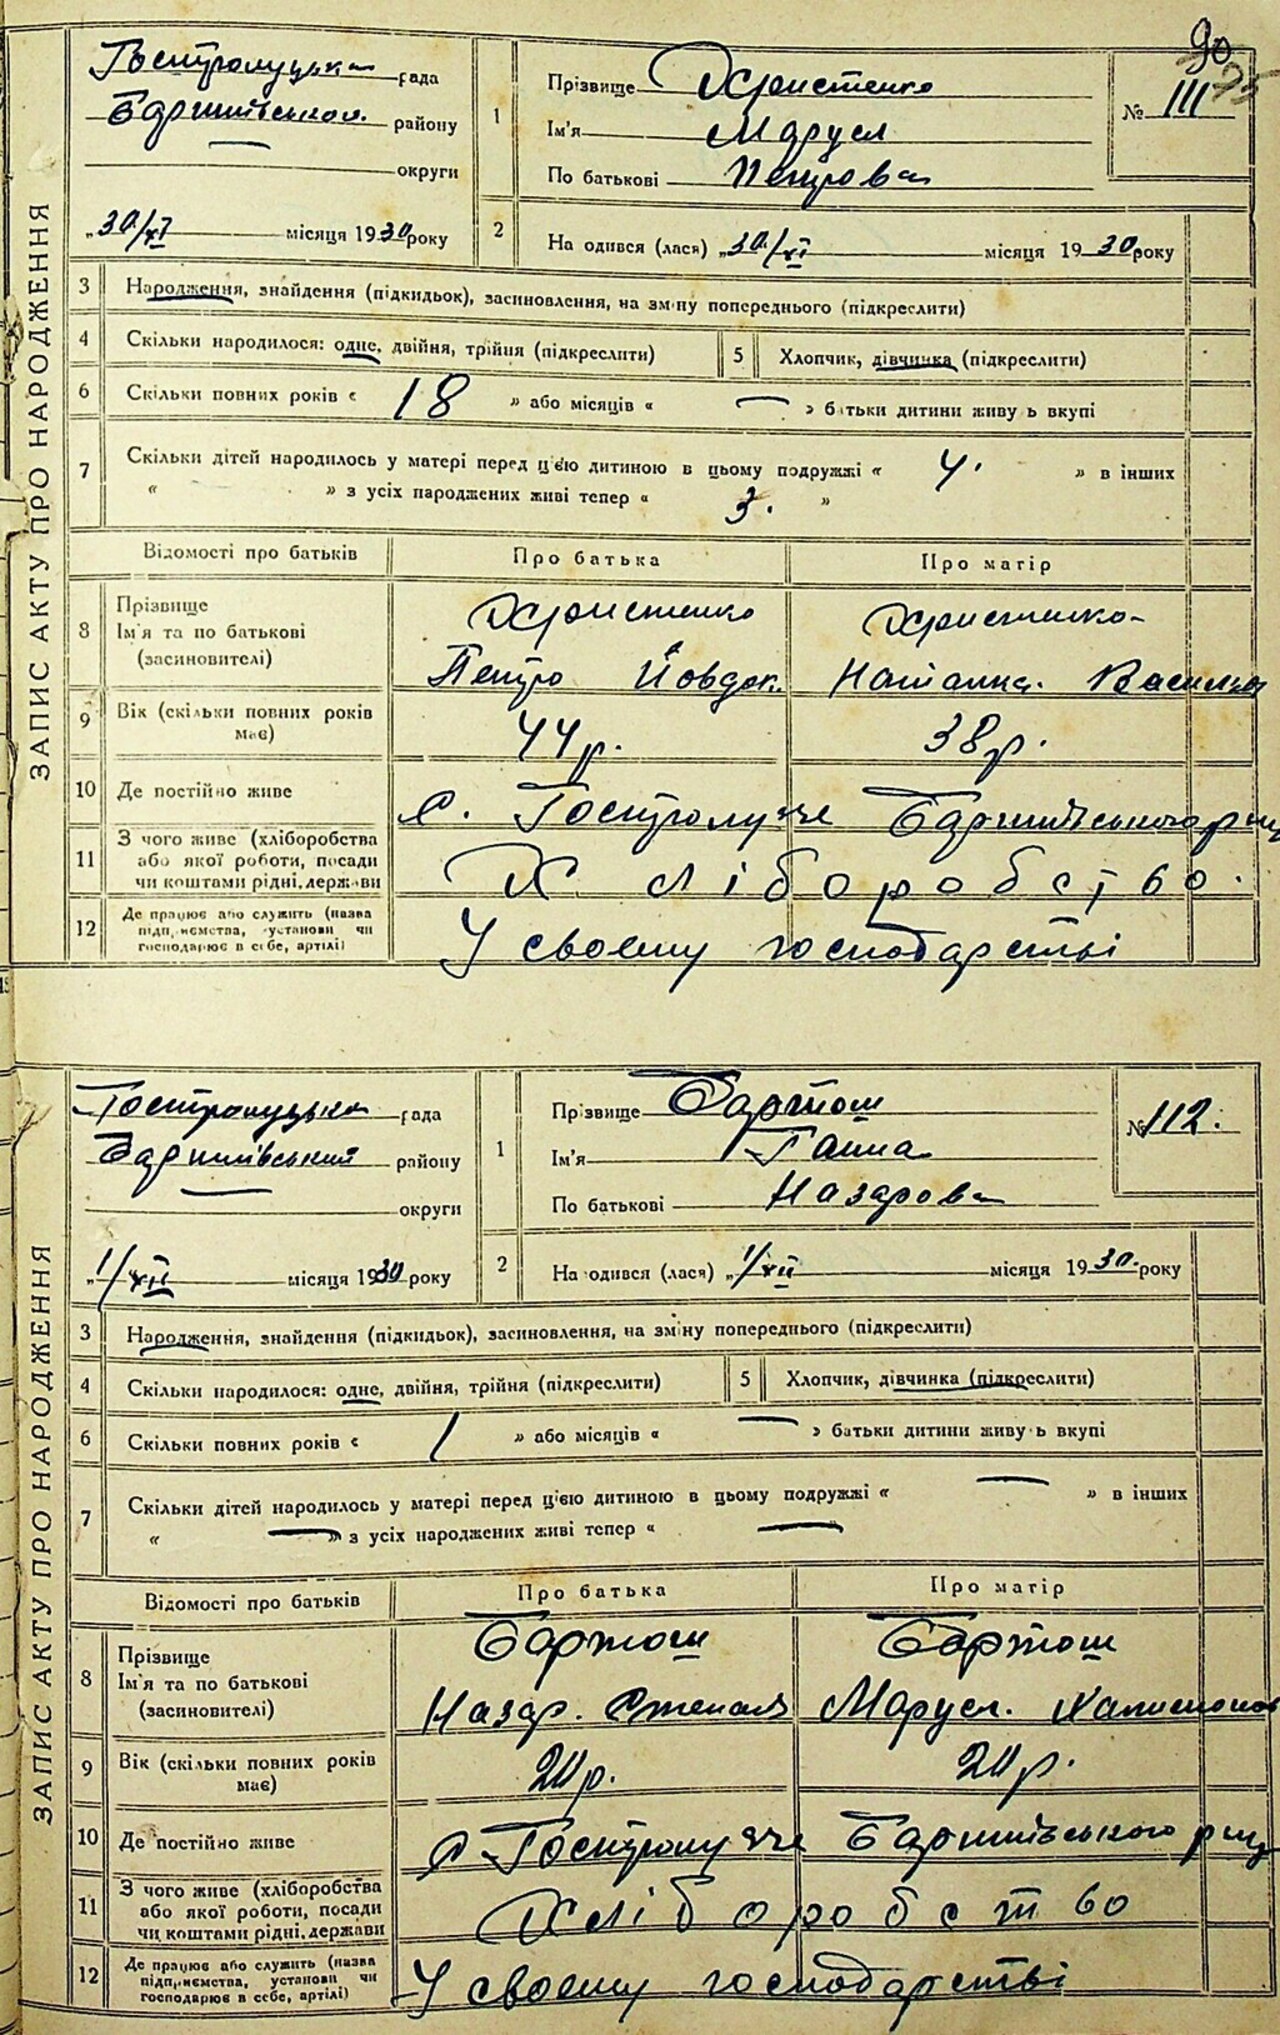 90
ЗАПИС АКТУ ПРО НАРОДЖЕННЯ
Гостролуцька рада
Баришівськой району
округи
„30/XI місяця 1930 року
1 Прізвище Христенко
Ім'я Маруся
По батькові Петрова
№ 111
2 На одився (лася) „30/XI місяця 1930 року
3 Народження, знайдення (підкидьок), засиновлення, на зміну попереднього (підкреслити)
4 Скільки народилося: одне, двійня, трійня (підкреслити) 5 Хлопчик, дівчинка (підкреслити)
6 Скільки повних років « 18 » або місяців « — » батьки дитини живу ь вкупі
7 Скільки дітей народилось у матері перед цією дитиною в цьому подружжі « 4. » в інших
« » з усіх народжених живі тепер « 3. »
Відомості про батьків Про батька Про матір
8 Прізвище Ім'я та по батькові (засиновителі)
Христенко Христенко
Петро Йовдок. Наталка. Василів
9 Вік (скільки повних років має) 44 р. 38 р.
10 Де постійно живе с. Гостролуччє Баришівського
11 З чого живе (хліборобства або якої роботи, посади чи коштами рідні, держави Хліборобство.
12 Де працює або служить (назва підприємства, установи чи господарює в себе, артілі) У своєму господарстві
ЗАПИС АКТУ ПРО НАРОДЖЕННЯ
Гостролуцька рада
Баришівський району
округи
„1/XII місяця 1930 року
1 Прізвище Бартош
Ім'я Ганна
По батькові Назарова
№ 112.
2 На одився (лася) „1/XII місяця 1930. року
3 Народження, знайдення (підкидьок), засиновлення, на зміну попереднього (підкреслити)
4 Скільки народилося: одне, двійня, трійня (підкреслити) 5 Хлопчик, дівчинка (підкреслити)
6 Скільки повних років « 1 » або місяців « — » батьки дитини живу ь вкупі
7 Скільки дітей народилось у матері перед цією дитиною в цьому подружжі « — » в інших
« — » з усіх народжених живі тепер « —
Відомості про батьків Про батька Про матір
8 Прізвище Ім'я та по батькові (засиновителі)
Бартош Бартош
Назар. Степанів Маруся.
9 Вік (скільки повних років має) 20 р. 20 р.
10 Де постійно живе с. Гостролуччє Баришівського
11 З чого живе (хліборобства або якої роботи, посади чи коштами рідні, держави Хліборобство
12 Де працює або служить (назва підприємства, установи чи господарює в себе, артілі) У своєму господарстві